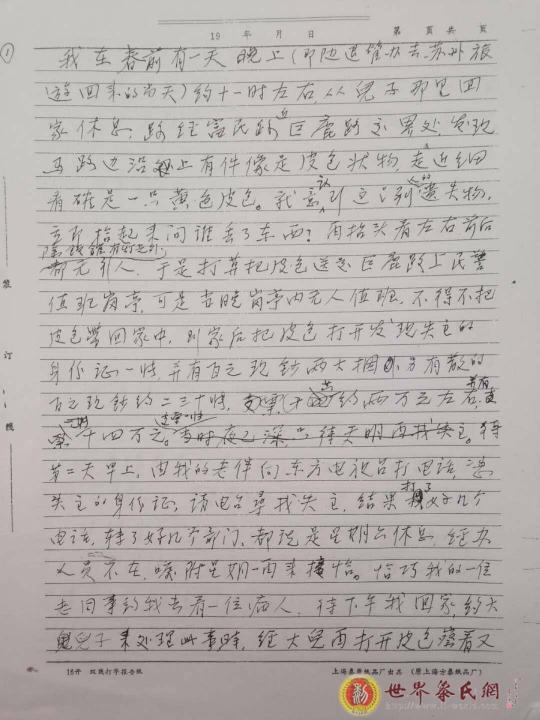 19 年 月 日 第 页共 页
1
我在春前有一天晚上(即随退管办去苏州旅
游回来的当天)约十一时左右,从兒子那里回
家休息,路经富民路近巨鹿路交界处,发现
马路边沿上有件像是皮包状物,走近细
看确是一只黄色皮包。我意认到这是别人的遗失物,
立即拾起来问谁丢了东西?再抬头看左右前后
都无别人,于是打算把皮包送至巨鹿路上民警
值班岗亭,可是当晚岗亭内无人值班,不得不把
皮包带回家中,到家后把皮包打开发现失主的
身份证一张,并有百元现钞两大捆,另有散的
百元现钞约二三十张,共约两万元左右,并有支
票十四万元。当时夜已深,只待天明再找失主。待
第二天早上,由我的老伴向东方电视台打电话,凭
失主的身份证,请电台寻找失主,结果打了好几个
电话,转了好几个部门,都说是星期六休息,经办
人员不在,嘱附星期一再来接恰。恰巧我的一位
老同事约我去看一位病人,待下午我回家,约大
兒子来处理此事时,经大兒再打开皮包落着又
装 订 线
16开 双线打字报告纸
上海泰康纸品厂出品 (原上海方泰纸品厂)
世界蔡氏網